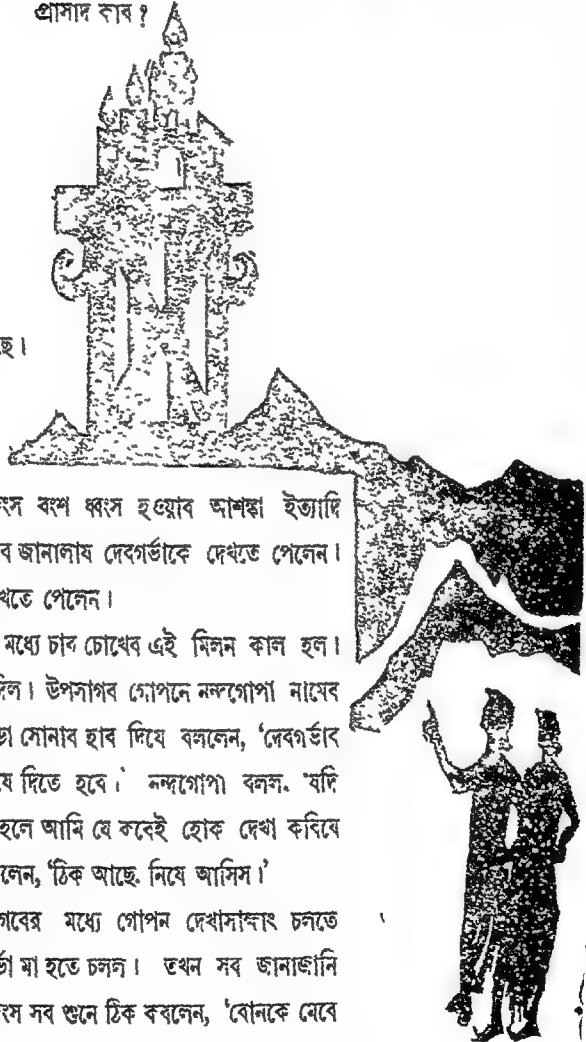 প্রাসাদ কাব ?
ছে।
ংস বংশ ধ্বংস হওয়াব আশঙ্কা ইত্যাদি
ব জানালায দেবগর্ভাকে দেখতে পেলেন।
খতে পেলেন।
মধ্যে চাব চোখেব এই মিলন কাল হল।
দিল। উপসাগব গোপনে নন্দগোপা নামেব
ড়া সোনাব হাব দিযে বললেন, ‘দেবগর্ভাব
যে দিতে হবে।’ নন্দগোপা বলল. ‘যদি
হলে আমি যে কবেই হোক দেখা কবিযে
লেন, ‘ঠিক আছে. নিযে আসিস।’
গবের মধ্যে গোপন দেখাসাক্ষাৎ চলতে
র্ভা মা হতে চলল। তখন সব জানাজানি
ংস সব শুনে ঠিক কবলেন, ‘বোনকে মেবে